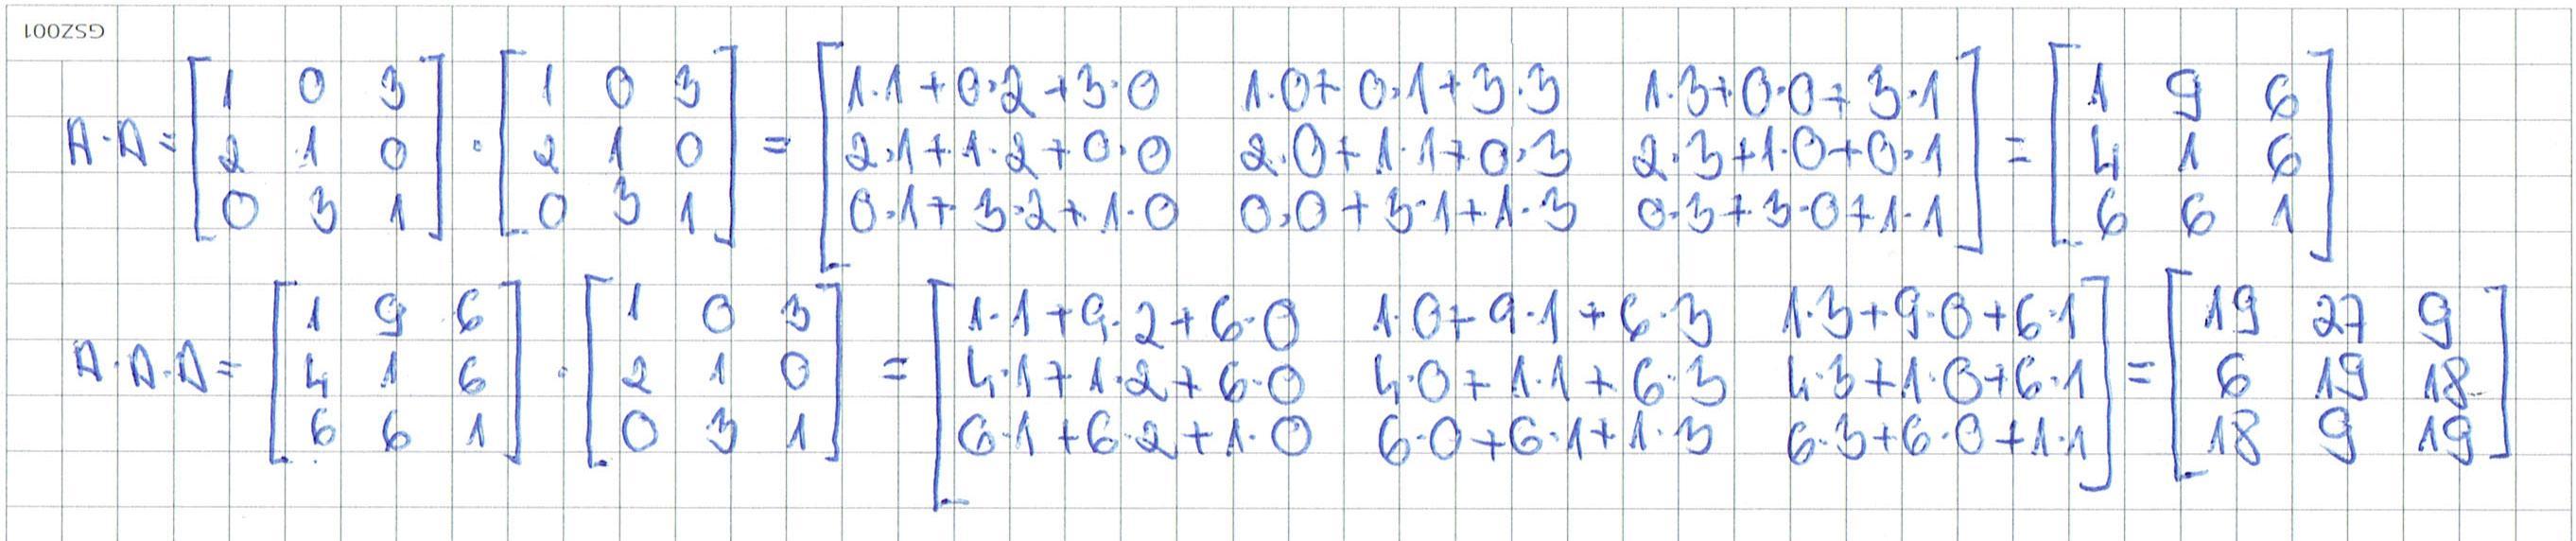 GSZ001
A·A = [1 0 3; 2 1 0; 0 3 1] · [1 0 3; 2 1 0; 0 3 1] = [1·1+0·2+3·0 1·0+0·1+3·3 1·3+0·0+3·1; 2·1+1·2+0·0 2·0+1·1+0·3 2·3+1·0+0·1; 0·1+3·2+1·0 0·0+3·1+1·3 0·3+3·0+1·1] = [1 9 6; 4 1 6; 6 6 1]
A·A·A = [1 9 6; 4 1 6; 6 6 1] · [1 0 3; 2 1 0; 0 3 1] = [1·1+9·2+6·0 1·0+9·1+6·3 1·3+9·0+6·1; 4·1+1·2+6·0 4·0+1·1+6·3 4·3+1·0+6·1; 6·1+6·2+1·0 6·0+6·1+1·3 6·3+6·0+1·1] = [19 27 9; 6 19 18; 18 9 19]